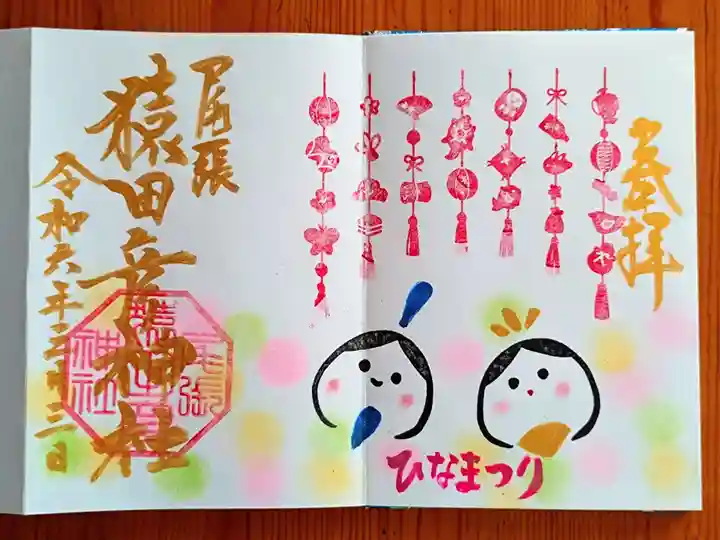 奉拝
ひなまつり
尾張
猿田彦神社
令和六年三月三日
尾張
神社